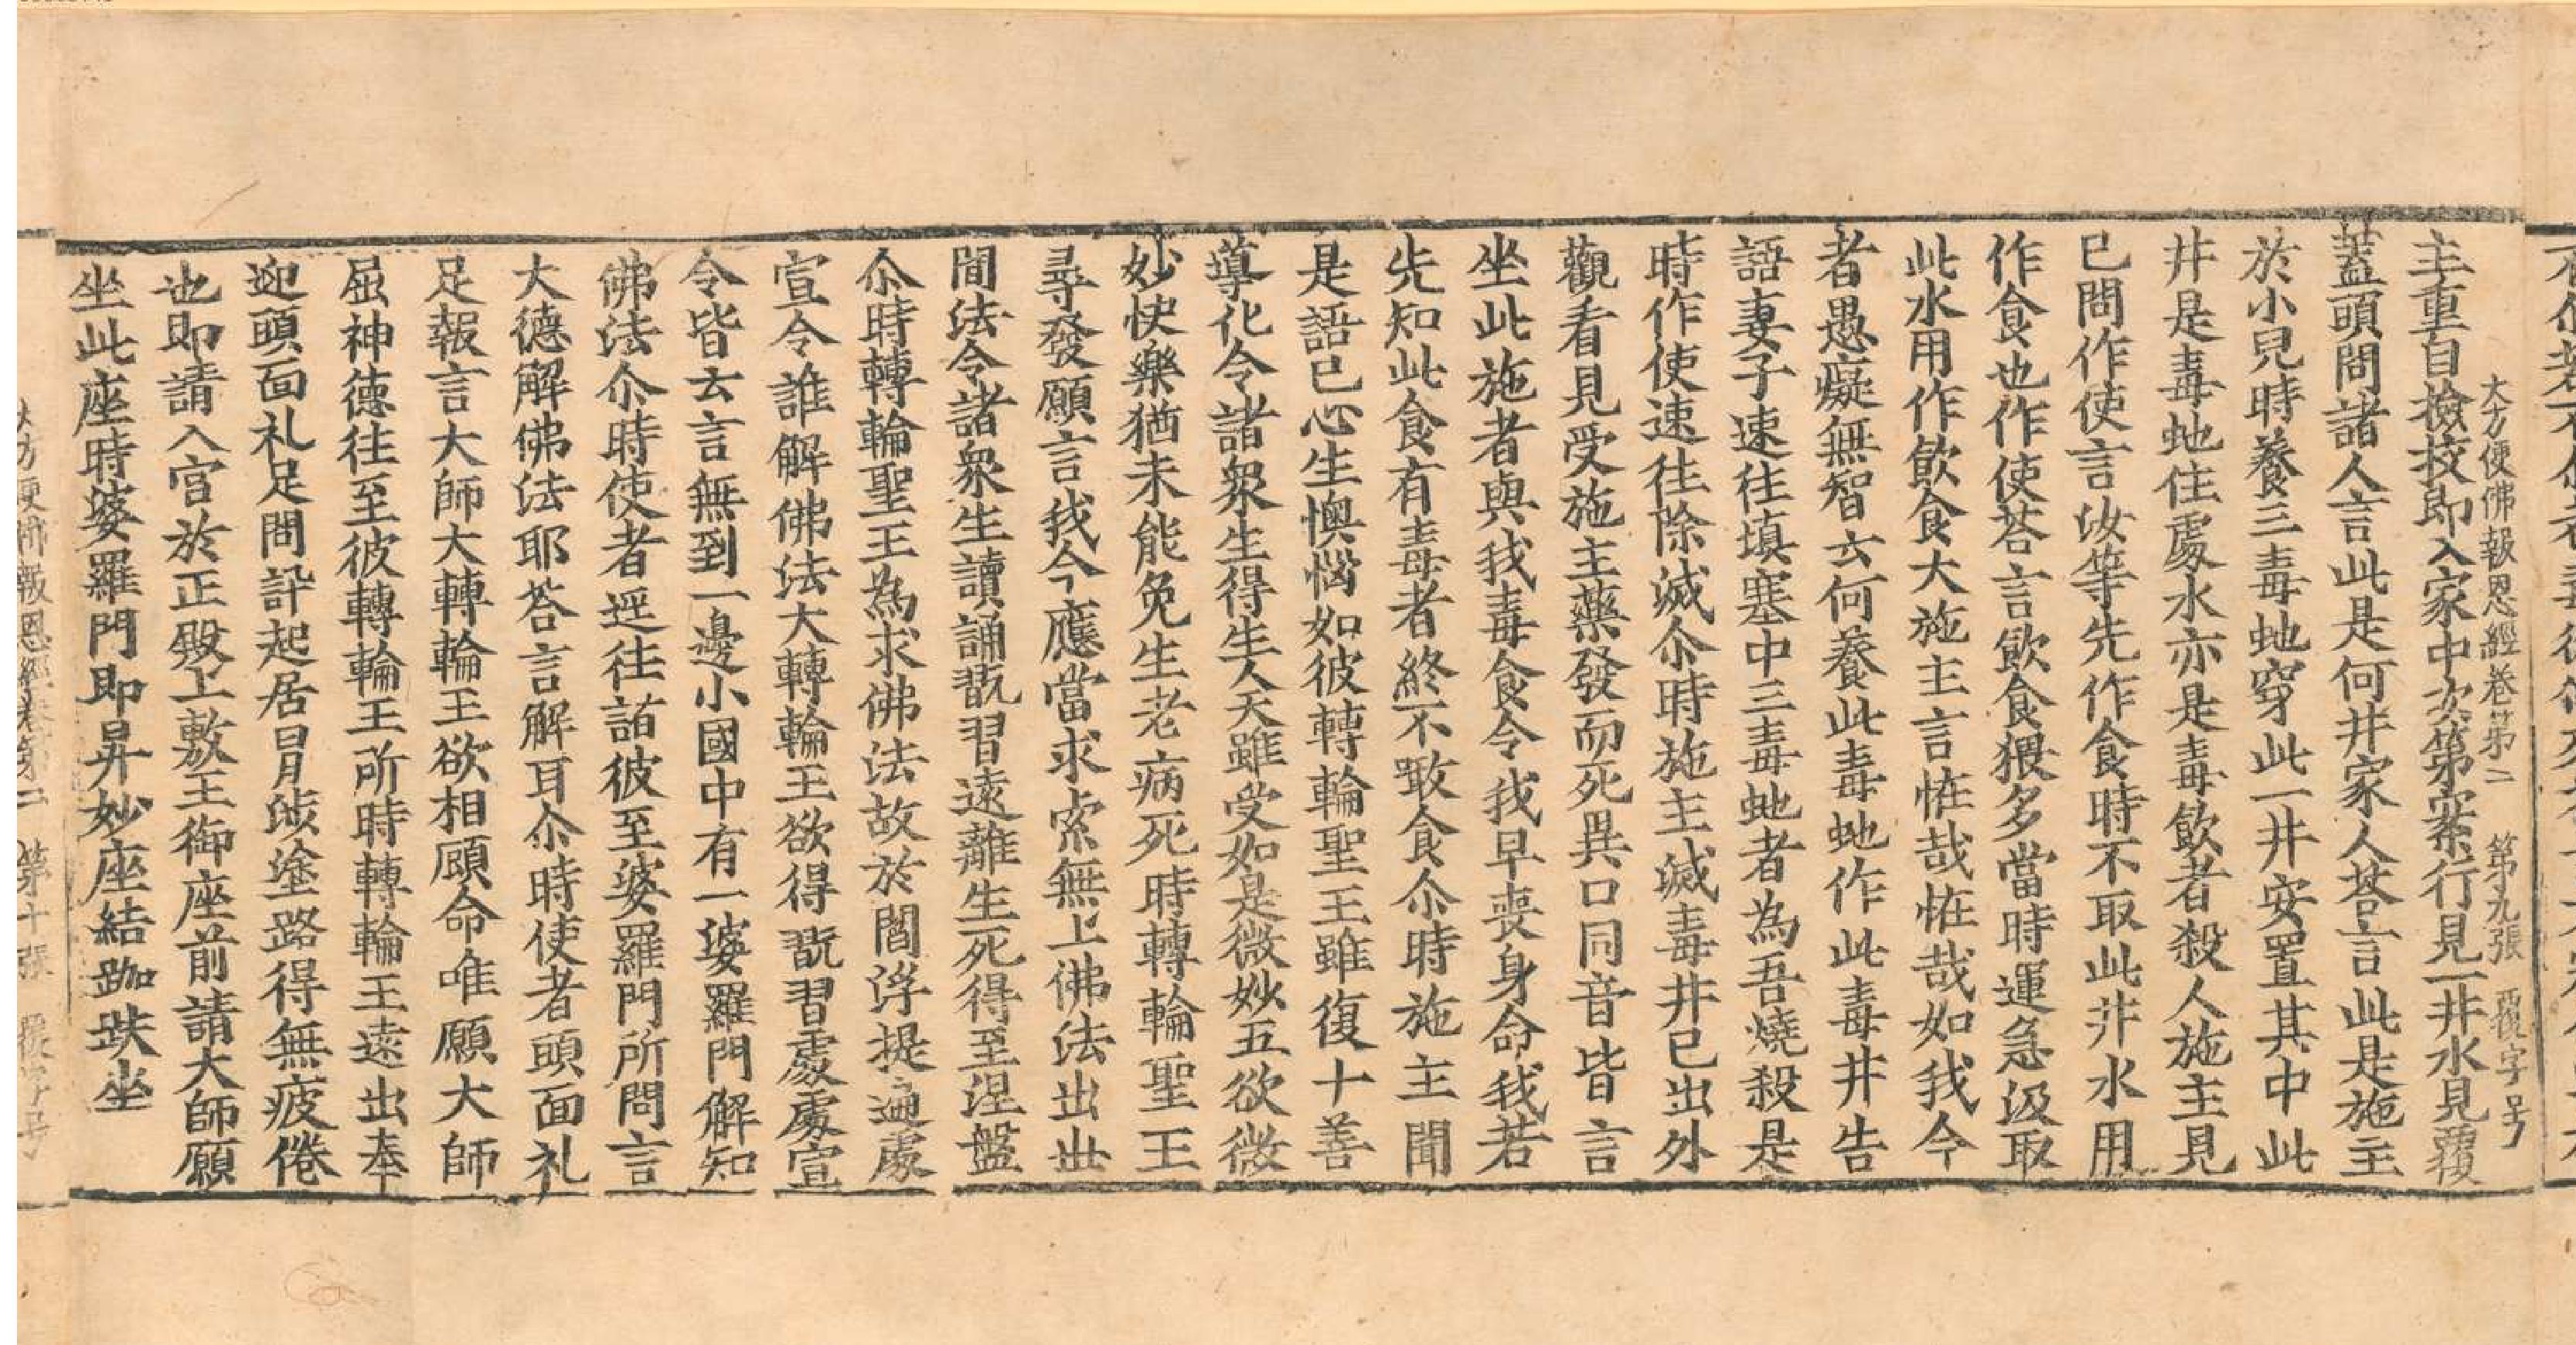 大方便佛報恩經卷第二 第九張 覆字号
主重自撿挍即入家中次第案行見一井水見覆
蓋頭問諸人言此是何井家人荅言此是施主
於小兒時養三毒虵穿此一井安置其中此
井是毒虵住處水亦是毒飲者殺人施主見
已問作使言汝等先作食時不取此井水用
作食也作使荅言飲食猥多當時運急汲取
此水用作飲食大施主言恠哉恠哉如我今
者愚癡無智云何養此毒虵作此毒井告
語妻子速往填塞中三毒虵者為吾燒殺是
時作使速往除滅尒時施主滅毒井已出外
觀看見受施主藥發而死異口同音皆言
坐此施者與我毒食令我早喪身命我若
先知此食有毒者終不敢食尒時施主聞
是語已心生懊惱如彼轉輪聖王雖復十善
導化令諸衆生得生人天雖受如是微妙五欲微
妙快樂猶未能免生老病死時轉輪聖王
尋發願言我今應當求索無上佛法出世
間法令諸衆生讀誦翫習遠離生死得至涅盤
尒時轉輪聖王為求佛法故於閻浮提遍處
宣令誰解佛法大轉輪王欲得翫習處處宣
令皆云言無到一邊小國中有一婆羅門解知
佛法尒時使者逕往詣彼至婆羅門所問言
大德解佛法耶荅言解耳尒時使者頭面礼
足報言大師大轉輪王欲相顧命唯願大師
屈神德往至彼轉輪王所時轉輪王遠出奉
迎頭面礼足問訊起居冒涉塗路得無疲倦
也即請入宮於正殿上敷王御座前請大師願
坐此座時婆羅門即昇妙座結跏趺坐